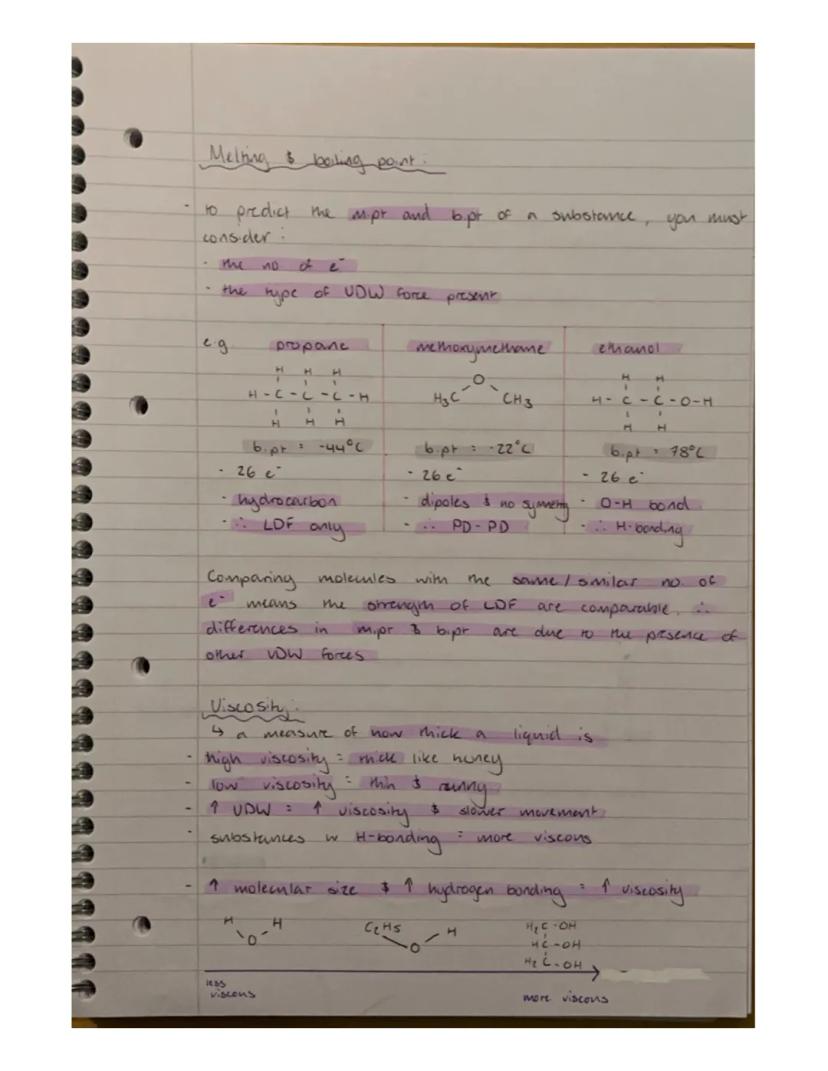 Melting & boiling point:
- to predict the m.pt and b.pt of a substance, you must
consider:
- the no of e⁻
- the type of VDW force present
e.g. propane methoxymethane ethanol
H H H
H - C - C - C - H
H H H
O
H₃C CH₃
H H
H - C - C - O - H
H H
b.pt = -44°C b.pt = -22°C b.pt = 78°C
- 26 e⁻ - 26 e⁻ - 26 e⁻
- hydrocarbon - dipoles & no symmetry - O-H bond
- ∴ LDF only - ∴ PD-PD - ∴ H-bonding
Comparing molecules with the same/similar no. of
e⁻ means the strength of LDF are comparable, ∴
differences in m.pt & b.pt are due to the presence of
other VDW forces
Viscosity:
↳ a measure of how thick a liquid is
- high viscosity = thick like honey
- low viscosity = thin & runny
- ↑ VDW = ↑ viscosity & slower movement
- substances w H-bonding = more viscous
- ↑ molecular size & ↑ hydrogen bonding = ↑ viscosity
H H
O
C₂H₅ H
O
H₂C - OH
HC - OH
H₂C - OH
less
viscous
more viscous